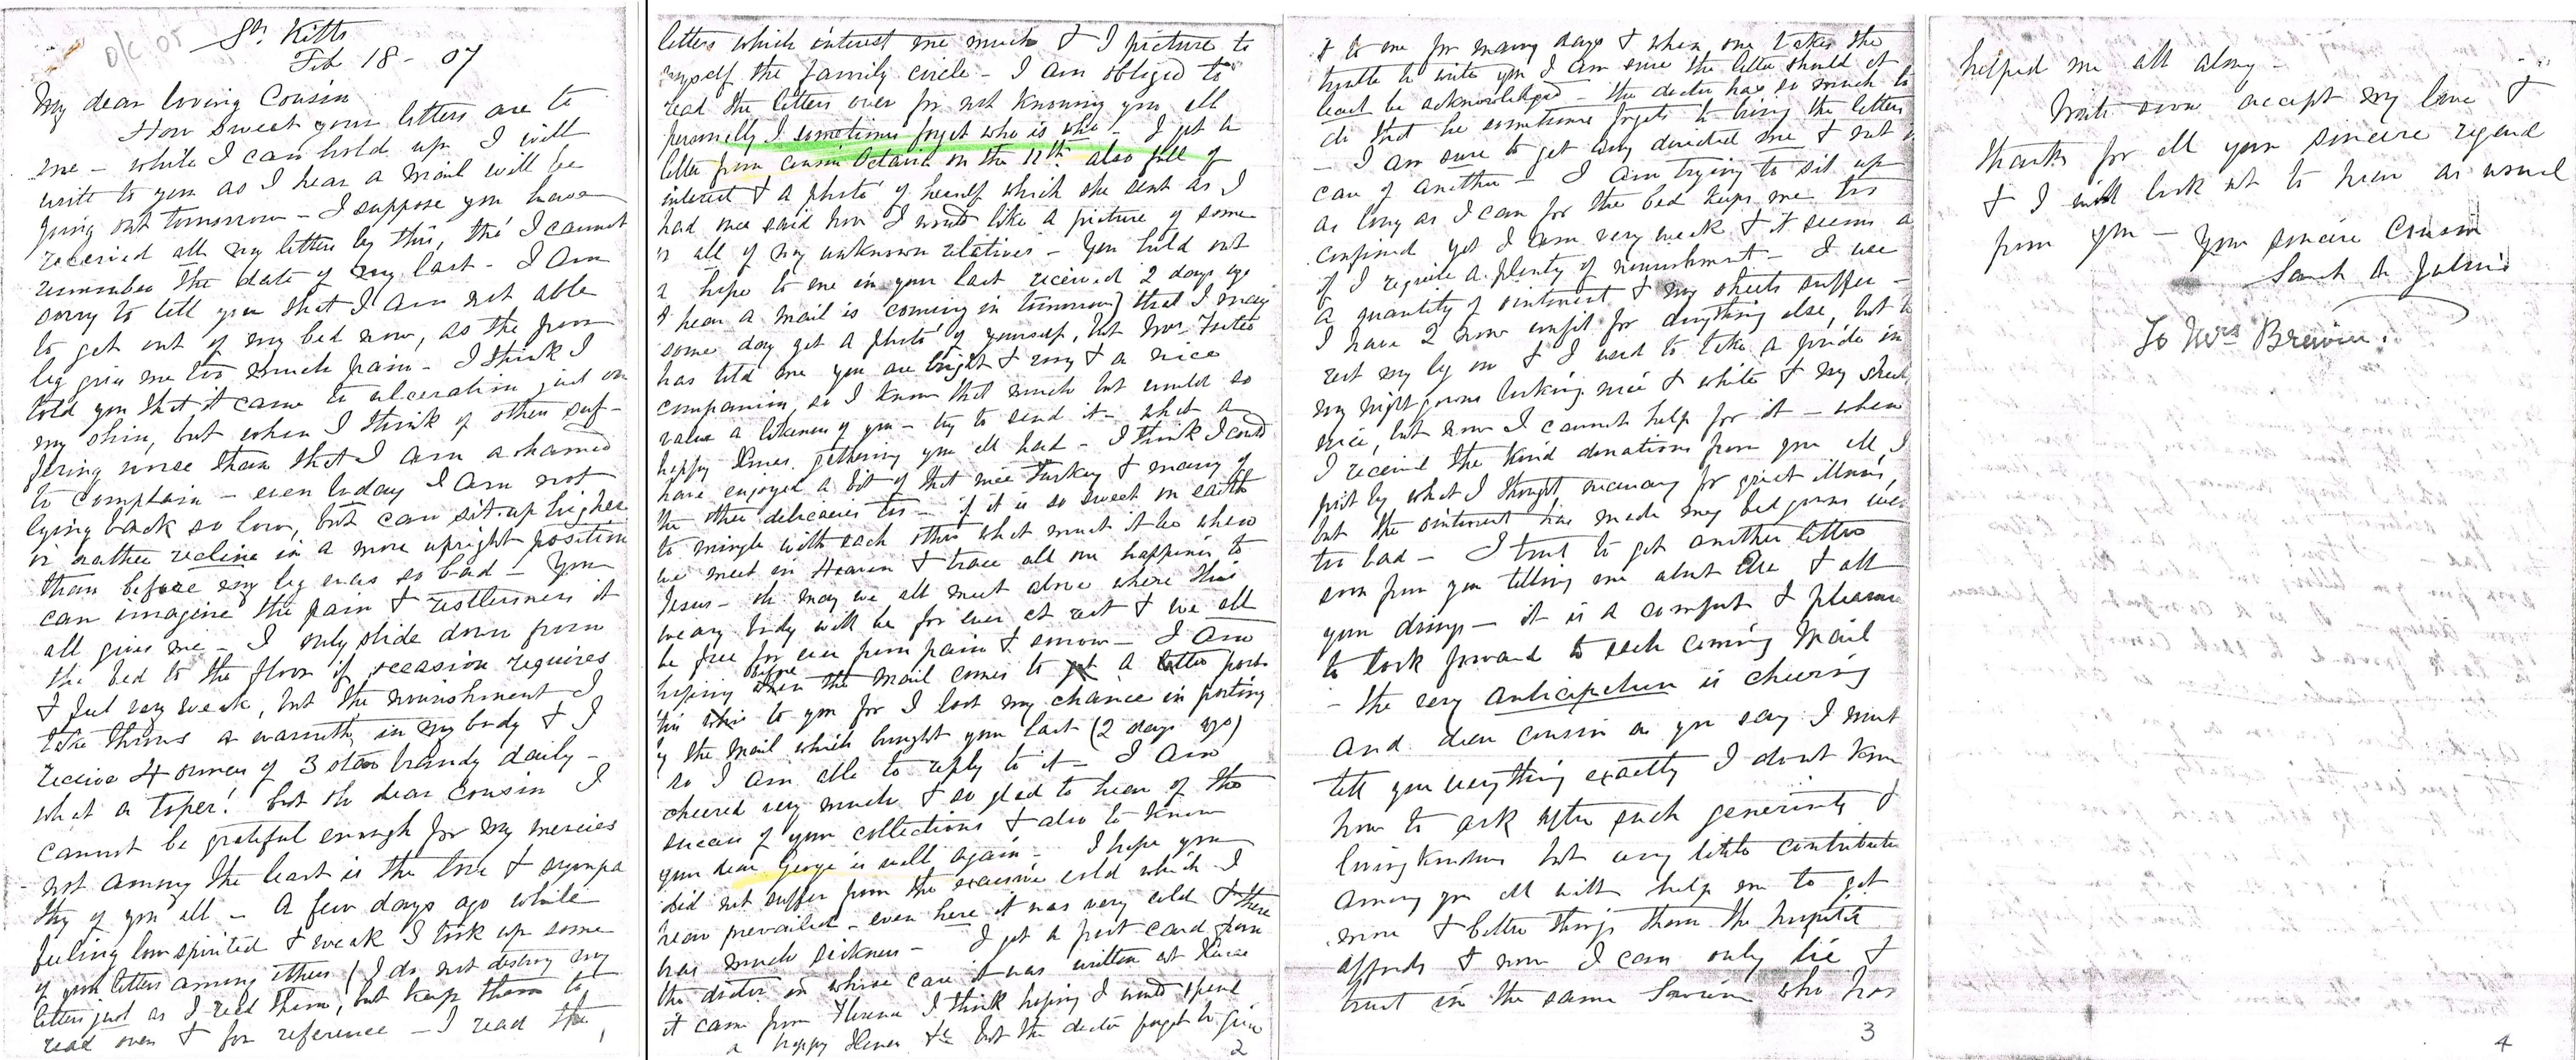 o/c 05
St. Kitts
Feb 18 - 07
My dear loving Cousin
How sweet your letters are to
me - while I can hold up I will
write to you as I hear a Mail will be
going out tomorrow - I suppose you have
received all my letters by this, tho' I cannot
remember the date of my last - I am
sorry to tell you that I am not able
to get out of my bed now, as the poor
leg give me too much pain - I think I
told you that it came to ulceration just on
my shin, but when I think of others suf-
fering worse than that I am ashamed
to complain - even today I am not
lying back so low, but can sit up higher
or rather recline in a more upright position
than before my leg was so bad - You
can imagine the pain & restlessness it
all gives me - I only slide down from
the bed to the floor if occasion requires
I feel very weak, but the nourishment I
take throws a warmth in my body & I
receive 4 ounces of 3 star brandy daily -
what a toper! but oh dear Cousin I
cannot be grateful enough for my mercies
not among the least is the love & sympa
thy of you all - A few days ago while
feeling low spirited & weak I took up some
of your letters among others (I do not destroy my
letters just as I read them, but keep them to
read over & for reference - I read the
1
letters which interest me much & I picture to
myself the family circle - I am obliged to
read the letters over for not knowing you all
personally I sometimes forget who is who - I got a
letter from Cousin Octavia on the 12th also full of
interest & a photo' of herself which she sent as I
had once said how I would like a picture of some
or all of my unknown relatives - You hold out
a hope to me in your last received 2 days ago
I hear a mail is coming in tomorrow) that I may
some day get a photo' of yourself, but Mrs.
has told me you are bright & rosy & a nice
companion, so I know that much but would so
value a likeness of you - try to send it - what a
happy Xmas gathering you all had - I think I could
have enjoyed a bit of that nice Turkey & many of
the other delicacies too - if it is so sweet on earth
to mingle with each other what must it be when
we meet in Heaven & trace all our happiness to
Jesus - oh may we all meet above where this
weary body will be for ever at rest & we all
be free for ever from pain & sorrow - I am
hoping before when the Mail comes to get a letter
this to you for I lost my chance in posting
by the Mail which brought your last (2 days ago)
so I am able to reply to it - I am
cheered very much & so glad to hear of the
success of your collections & also to know
your dear George is well again - I hope you
did not suffer from the excessive cold which I
hear prevailed - even here it was very cold & there
was much sickness - I got a post card from
the doctor in whose care it was written at Xmas
it came from I think hoping I would spend
a happy Xmas &c but the doctor forgot to give
2
it to me for many days & when one takes the
trouble to write you I am sure the letter should at
least be acknowledged - the doctor has so much to
do that he sometimes forgets to bring the letters
- I am sure to get any directed me & not
care of another - I am trying to sit up
as long as I can for the bed keeps me too
confined yet I am very weak & it seems as
if I require a plenty of nourishment - I use
a quantity of ointment & my sheets suffer -
I have 2 now unfit for anything else, but to
rest my leg on & I used to take a pride in
my night gowns looking nice & white & my sheets
nice, but now I cannot help for it - when
I received the kind donations from you all, I
put by what I thought necessary for quiet illness,
but the ointment has made my bed gowns
too bad - I trust to get another letter
soon from you telling me about & all
your doings - it is a comfort & pleasure
to look forward to each coming Mail
- the very anticipation is cheering
and dear cousin as you say I must
tell you everything exactly I don't know
how to ask after such generosity &
loving kindness but any little contribute
among you all will help me to get
more & better things than the hospital
affords & now I can only lie &
trust in the same Saviour who has
3
helped me all along -
Write soon accept my love &
thanks for all your sincere regard
& I will look out to hear as usual
from you - Your sincere Cousin
Sarah A
To Mrs Brewin.
4